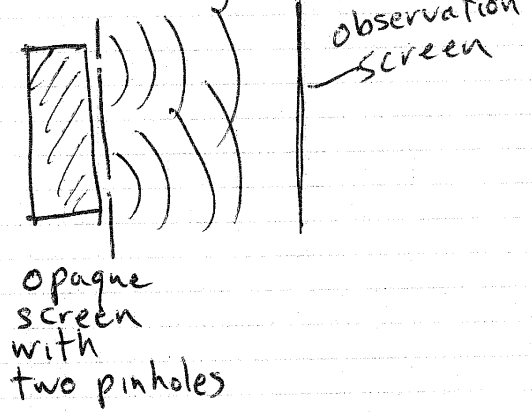 observation
screen
opaque
screen
with
two pinholes